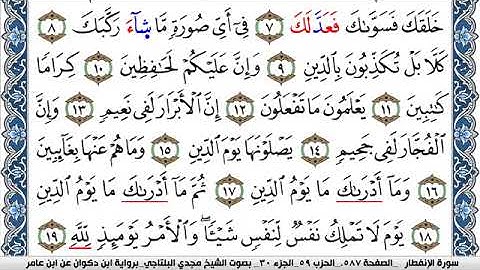 خَلَقَكَ فَسَوَّىٰكَ فَعَدَّلَكَ ٧ فِىٓ أَىِّ صُورَةٍ مَّا شَآءَ رَكَّبَكَ ٨
كَلَّا بَلْ تُكَذِّبُونَ بِٱلدِّينِ ٩ وَإِنَّ عَلَيْكُمْ لَحَٰفِظِينَ ١٠ كِرَامًا
كَٰتِبِينَ ١١ يَعْلَمُونَ مَا تَفْعَلُونَ ١٢ إِنَّ ٱلْأَبْرَارَ لَفِى نَعِيمٍ ١٣ وَإِنَّ
ٱلْفُجَّارَ لَفِى جَحِيمٍ ١٤ يَصْلَوْنَهَا يَوْمَ ٱلدِّينِ ١٥ وَمَا هُمْ عَنْهَا بِغَآئِبِينَ
١٦ وَمَآ أَدْرَىٰكَ مَا يَوْمُ ٱلدِّينِ ١٧ ثُمَّ مَآ أَدْرَىٰكَ مَا يَوْمُ ٱلدِّينِ
١٨ يَوْمَ لَا تَمْلِكُ نَفْسٌ لِّنَفْسٍ شَيْـًٔا وَٱلْأَمْرُ يَوْمَئِذٍ لِّلَّهِ ١٩
سورة الإنفطار _الصفحة ٥٨٧_ الحزب ٥٩_ الجزء ٣٠_ بصوت الشيخ مجدي البلتاجي_برواية ابن ذكوان عن ابن عامر